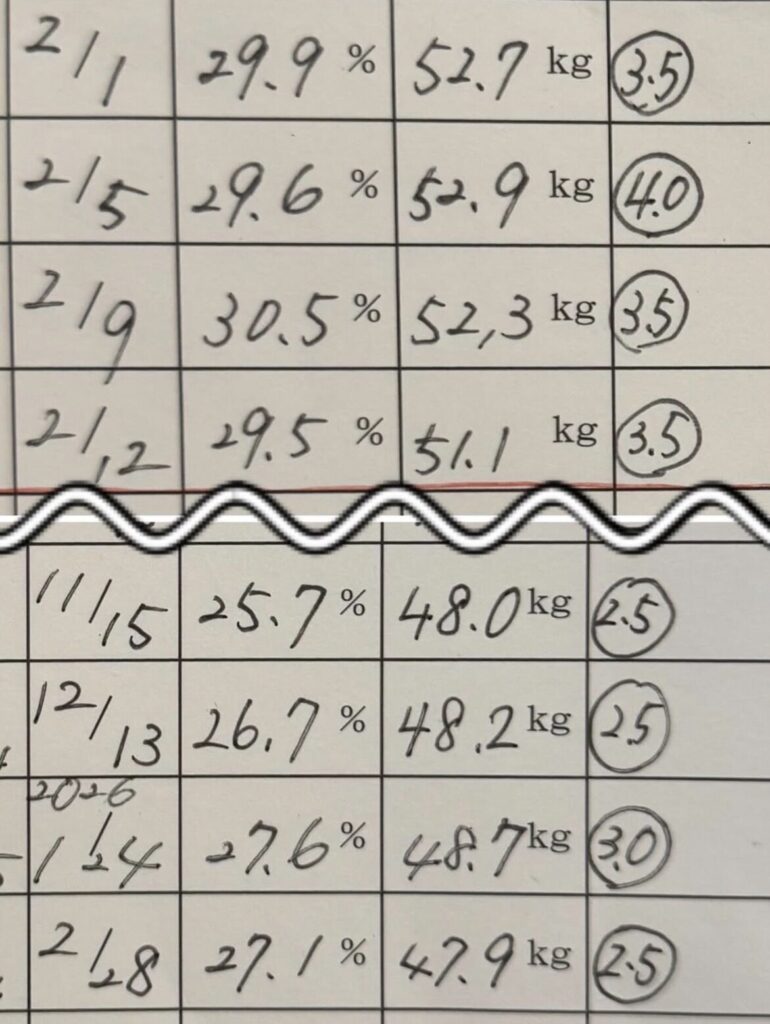 2/1 29.9 % 52.7 kg 3.5
2/5 29.6 % 52.9 kg 4.0
2/9 30.5 % 52,3 kg 3.5
2/12 29.5 % 51.1 kg 3.5
11/15 25.7 % 48.0 kg 2.5
12/13 26.7 % 48.2 kg 2.5
2026
1/24 27.6 % 48.7 kg 3.0
2/28 27.1 % 47.9 kg 2.5